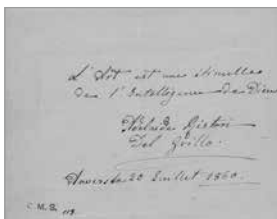 L'Art est une étincelle
de l'Intelligence de Dieu
Adelaide Ristori
Del Grillo.
Anvers le 20 Juillet 1860.
C.M.B. 119